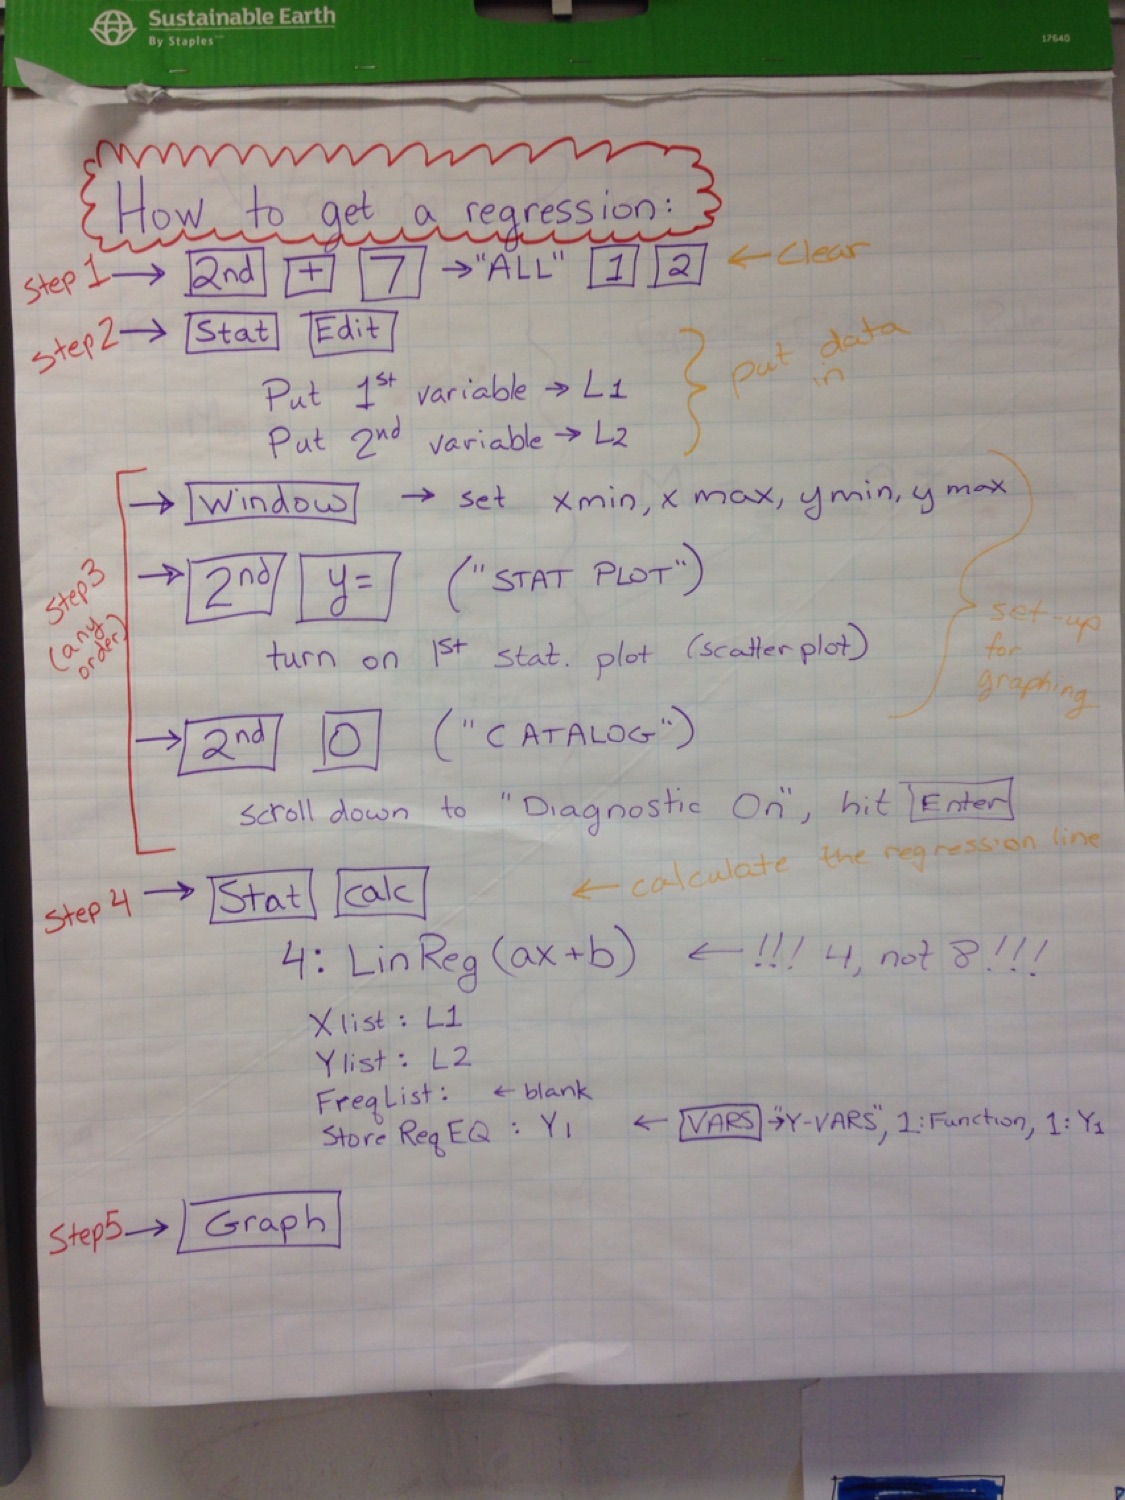 Sustainable Earth
By Staples™
17640
How to get a regression:
Step 1 → 2nd + 7 → "ALL" 1 2 ← Clear
Step 2 → Stat Edit
Put 1st variable → L1
Put 2nd variable → L2
put data
in
Step 3
(any
order)
→ Window → set xmin, x max, y min, y max
→ 2nd y= ("STAT PLOT")
turn on 1st stat. plot (scatter plot)
set-up
for
graphing
→ 2nd 0 ("CATALOG")
scroll down to "Diagnostic On", hit Enter
Step 4 → Stat calc ← calculate the regression line
4: LinReg (ax+b) ← !!! 4, not 8!!!
Xlist: L1
Ylist: L2
FreqList: ← blank
Store RegEQ: Y1 ← VARS → "Y-VARS", 1:Function, 1: Y1
Step5 → Graph